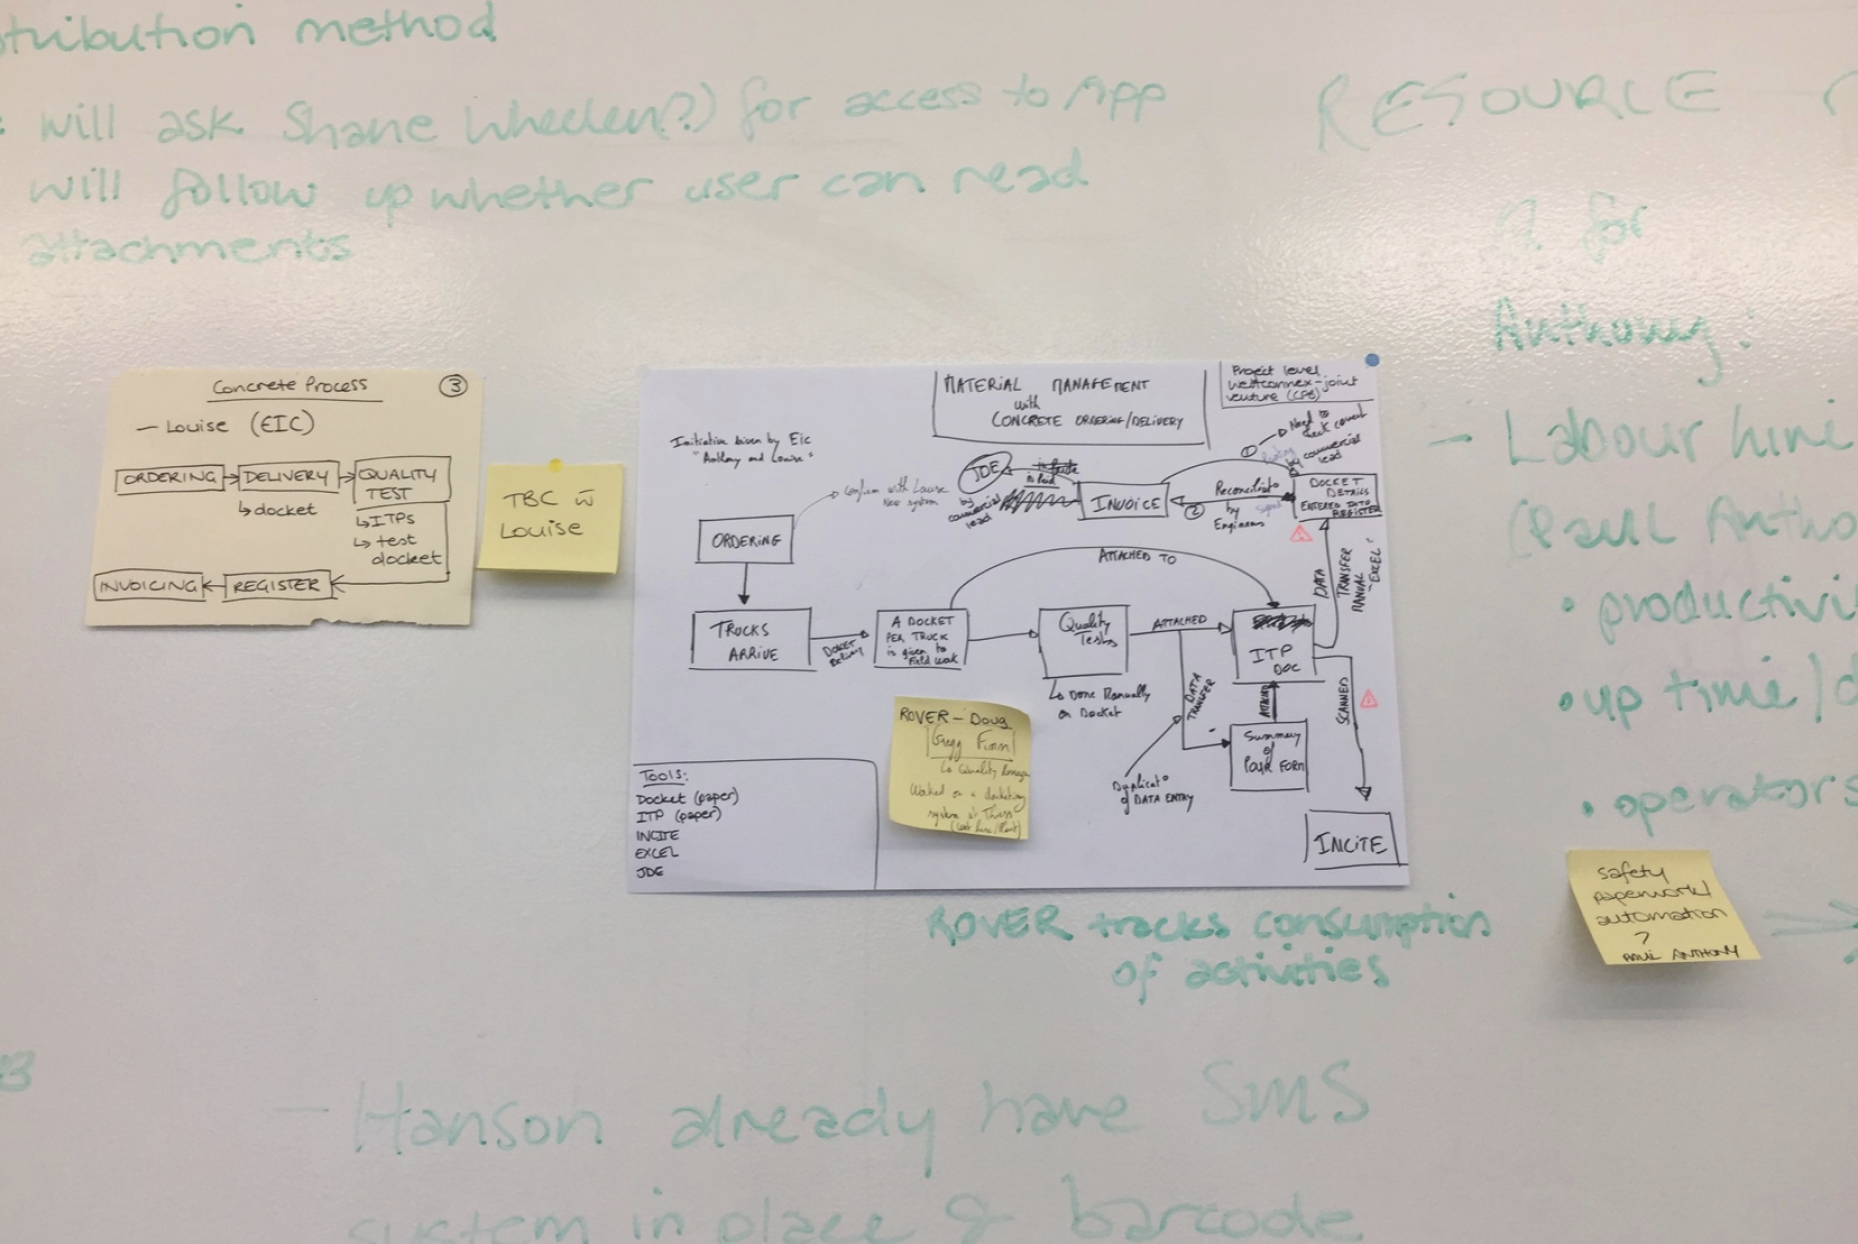 tribution method
: will ask Shane Wheelen(?) for access to App
will follow up whether user can read
attachments
RESOURCE
for
Anthony:
- Labour hire
(Paul Antho
• productivi
• up time/d
• operators
Concrete Process
3
- Louise (EIC)
ORDERING
DELIVERY
QUALITY
TEST
↳ docket
↳ ITPs
↳ test
docket
INVOICING
REGISTER
TBC w̄
Louise
MATERIAL MANAGEMENT
with
CONCRETE ORDERING/DELIVERY
Project level
westconnex-joint
venture (CPB)
Initiative driven by Eic
"Anthony and Louise"
Confirm with Louise
New system
JDE
by
commercial
lead
is Paid
INVOICE
1
Need to
check
by commercial
lead
Reconciliato
by
Engineers
2
DOCKET
DETAILS
ENTERED INTO
REGISTER
ORDERING
ATTACHED TO
DATA
TRANSFER
MANUAL
"EXCEL"
TRUCKS
ARRIVE
DOCKET
Delivery
A DOCKET
PER TRUCK
is given to
Field
Quality
Tests
ATTACHED
ITP
DOC
↳ Done Manually
on Docket
DATA
TRANSFER
ATTACHED
SCANNED
Summary
of
POUR FORM
Duplicato
of DATA ENTRY
INCITE
ROVER - Doug
↳ Quality
Worked on a
system at
Tools:
Docket (paper)
ITP (paper)
INCITE
EXCEL
JDE
ROVER tracks consumption
of activities
safety
paperwork/
automation
?
PAUL ANTHONY
- Hanson already have SMS
system in place & barcode